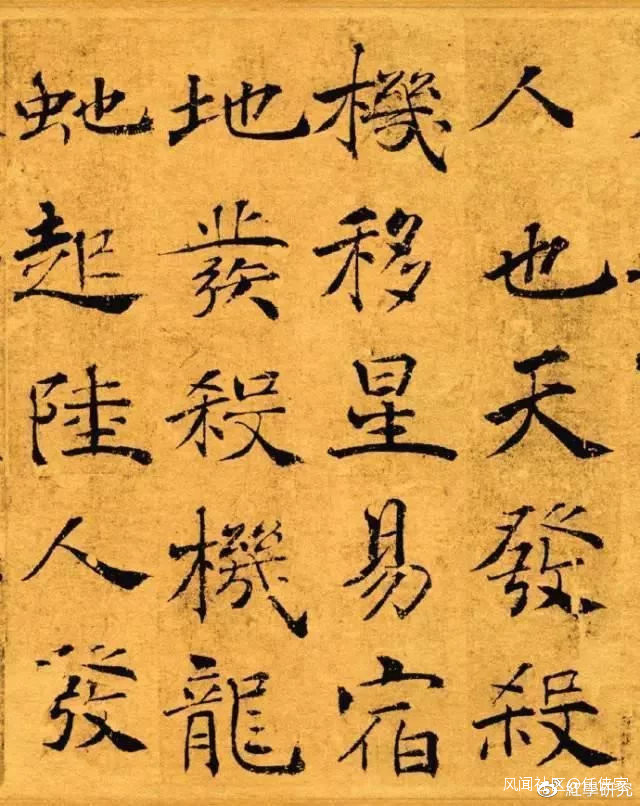 人也天發殺
機移星易宿
地發殺機龍
虵起陸人發
风闻社区@任佳家
紅學研究